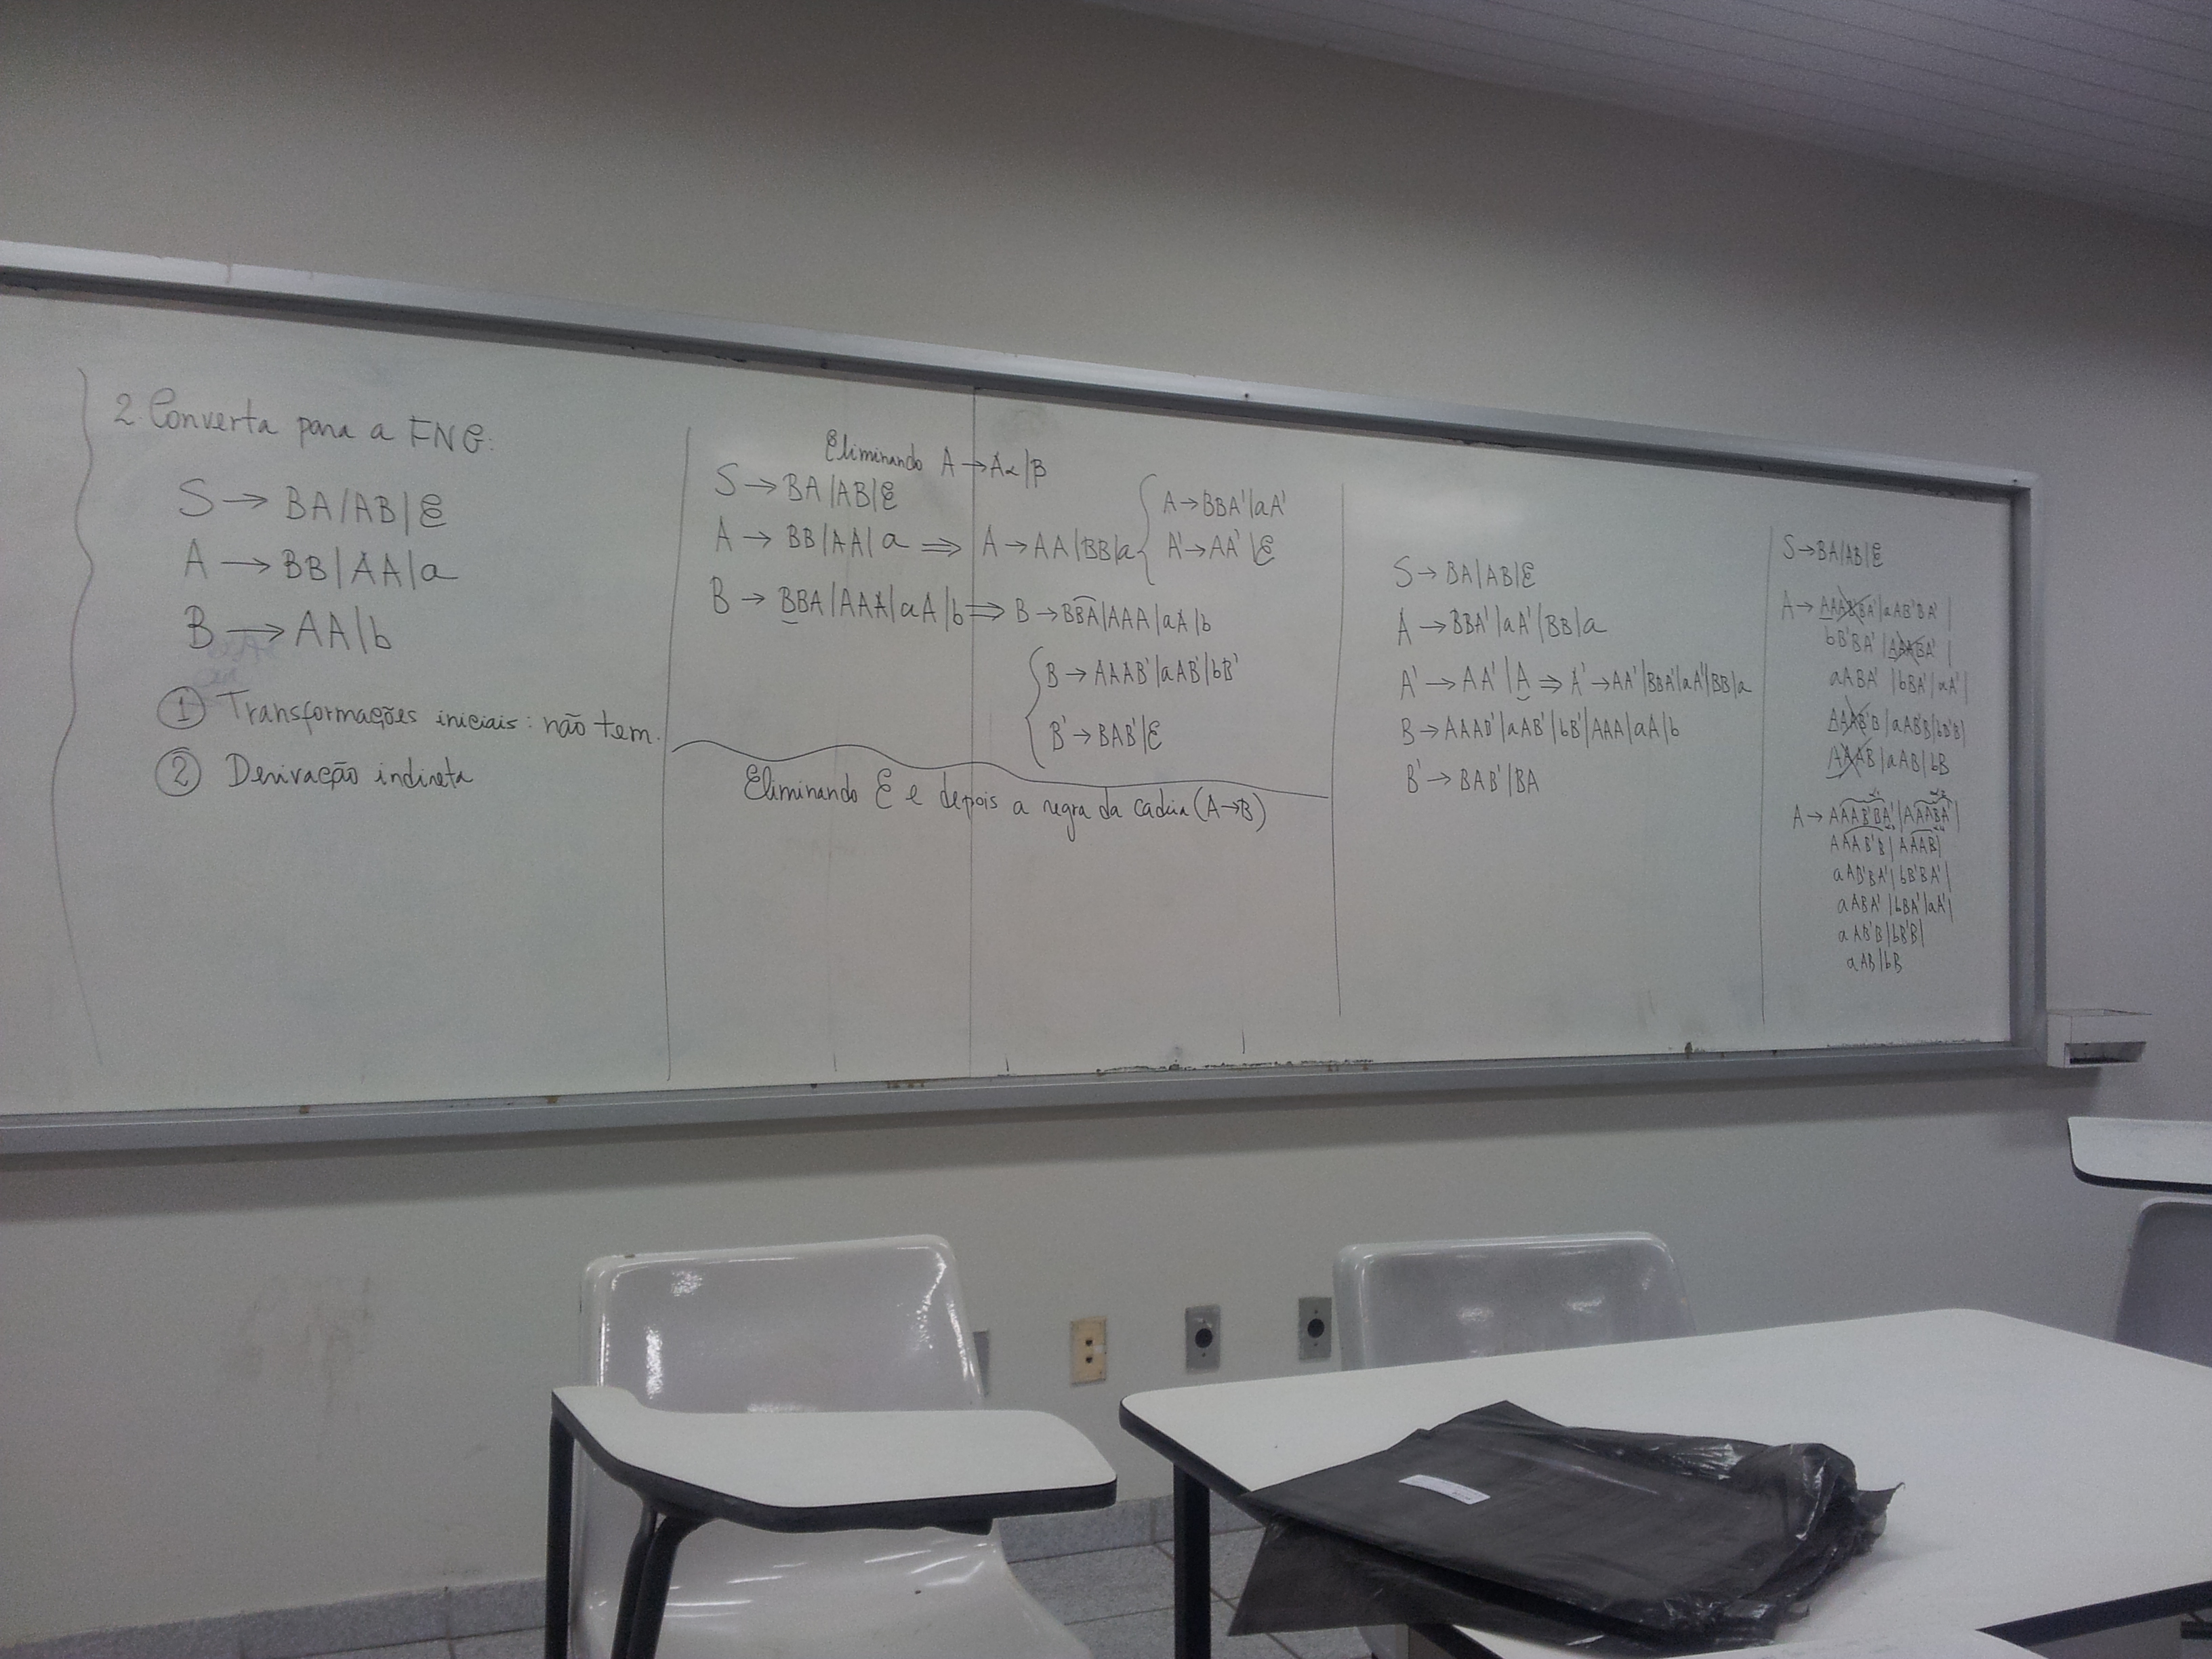 2. Converta para a FNG:
S → BA|AB|ε
A → BB|AA|a
B → AA|b
① Transformações iniciais: não tem.
② Derivação indireta
Eliminando A → Aα|β
S → BA|AB|ε
A → BB|AA|a ⇒ A → AA|BB|a
A → BBA'|aA'
A' → AA'|ε
B → BBA|AAA|aA|b ⇒ B → BBA|AAA|aA|b
B → AAAB'|aAB'|bB'
B' → BAB'|ε
Eliminando ε e depois a regra da cadeia (A→B)
S → BA|AB|ε
A → BBA'|aA'|BB|a
A' → AA'|A ⇒ A' → AA'|BBA'|aA'|BB|a
B → AAAB'|aAB'|bB'|AAA|aA|b
B' → BAB'|BA
S → BA|AB|ε
A → AAAB'BA'|aAB'BA'|
bB'BA'|AAABA'|
aABA'|bBA'|aA'|
AAAB'B|aAB'B|bB'B|
AAAB|aAB|bB
A → AAAB'BA'|AAABA'|
AAAB'B|AAAB|
aAB'BA'|bB'BA'|
aABA'|bBA'|aA'|
aAB'B|bB'B|
aAB|bB